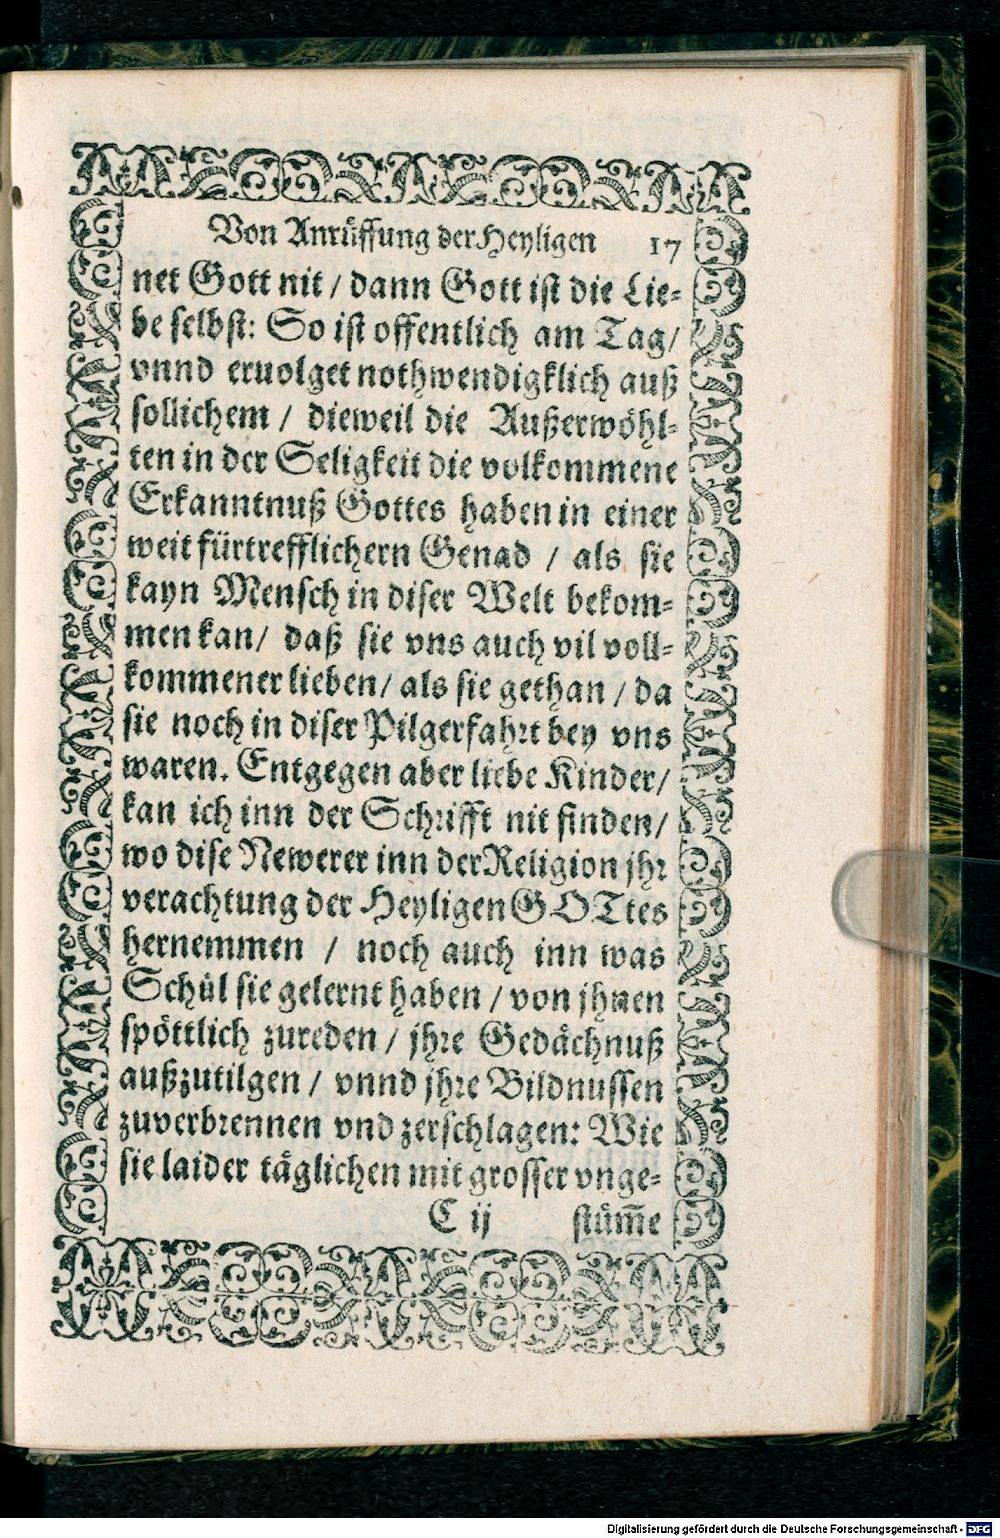 Von Anrüffung der Heyligen 17
net Gott nit / dann Gott ist die Lie-
be selbst: So ist offentlich am Tag /
vnnd eruolget nothwendigklich auß
sollichem / dieweil die Außerwöhl-
ten in der Seligkeit die volkommene
Erkanntnuß Gottes haben in einer
weit fürtrefflichern Genad / als sie
kayn Mensch in diser Welt bekom-
men kan / daß sie vns auch vil voll-
kommener lieben / als sie gethan / da
sie noch in diser Pilgerfahrt bey vns
waren. Entgegen aber liebe Kinder /
kan ich inn der Schrifft nit finden /
wo dise Newerer inn der Religion jhr
verachtung der Heyligen GOTtes
hernemmen / noch auch inn was
Schůl sie gelernt haben / von jhnen
spöttlich zureden / jhre Gedächnuß
außzutilgen / vnnd jhre Bildnussen
zuverbrennen vnd zerschlagen: Wie
sie laider täglichen mit grosser vnge-
C ij stüm̄e
Digitalisierung gefördert durch die Deutsche Forschungsgemeinschaft - DFG